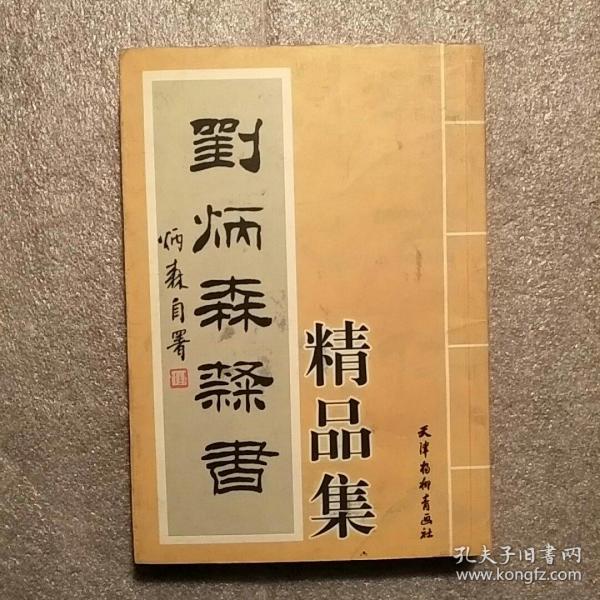 劉炳森隸書
炳森自署
精品集
天津杨柳青画社
孔夫子旧书网
www.kongfz.com